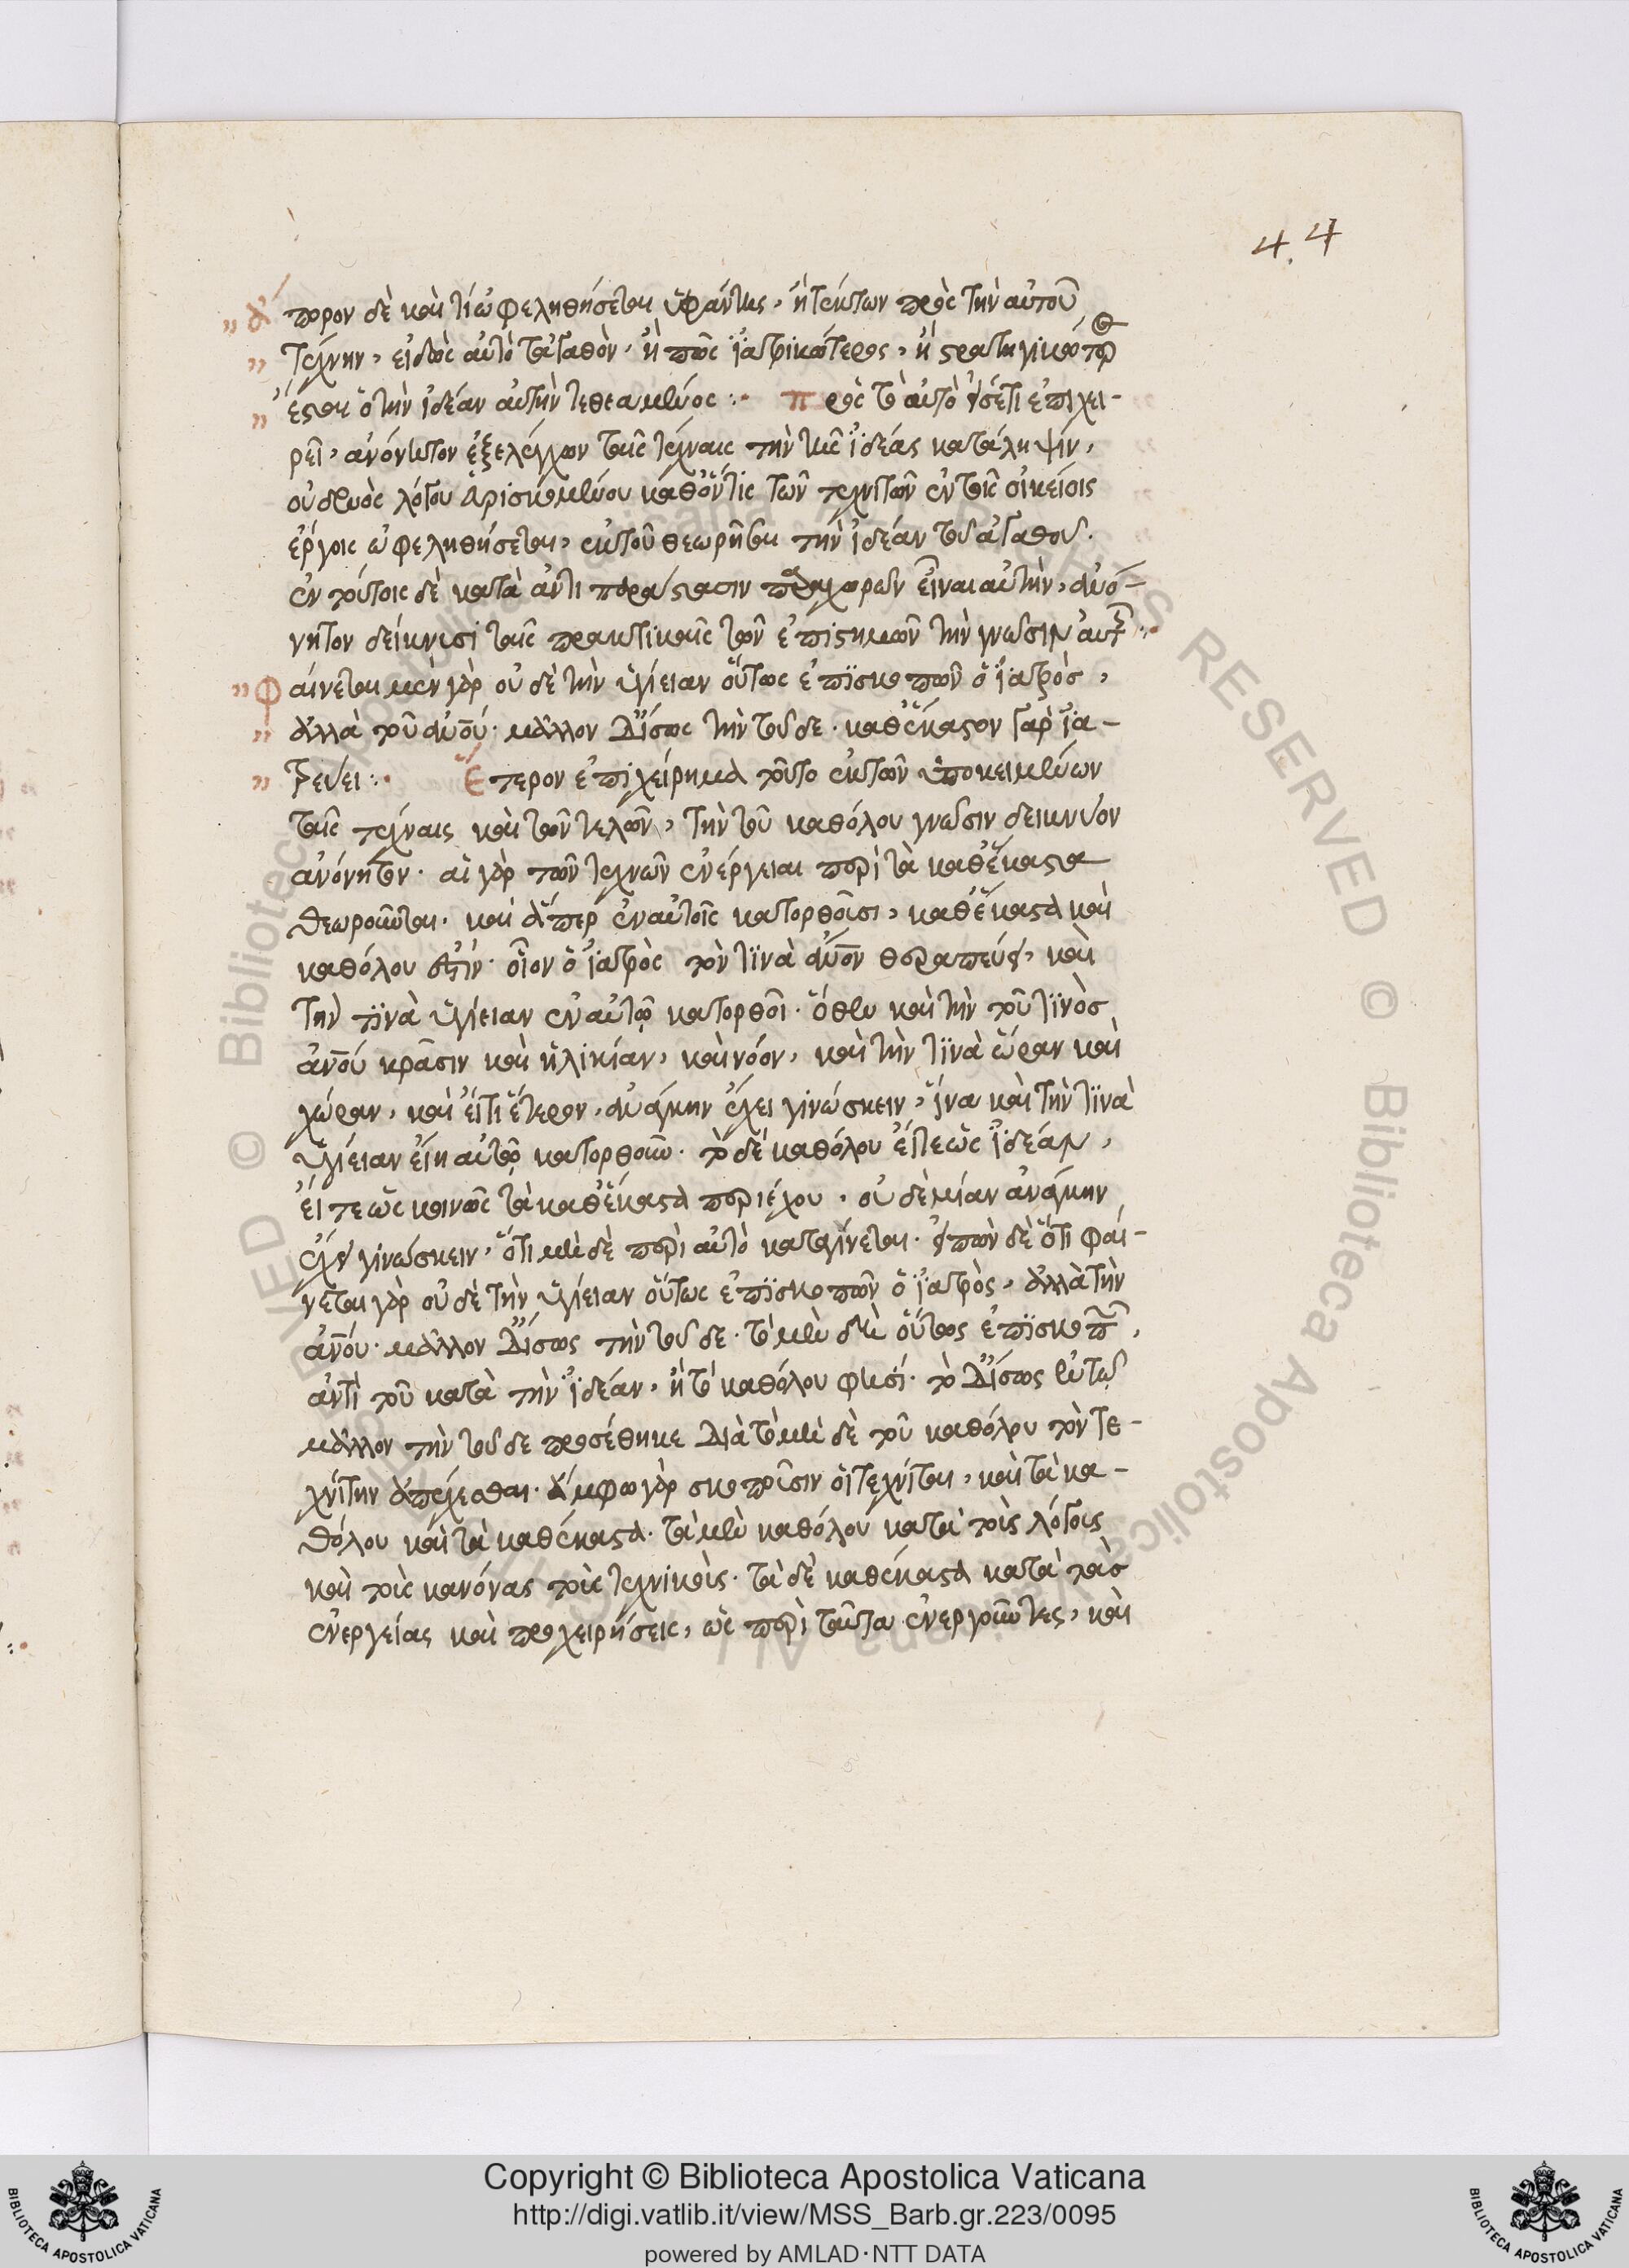 44
ἄπορον δὲ καὶ τί ὠφεληθήσεται ὑφάντης, ἢ τέκτων πρὸς τὴν αὐτοῦ
τέχνην, εἰδὼς αὐτὸ τἀγαθόν· ἢ πῶς ἰατρικώτερος, ἢ στρατηγικώτερος
ἔσται ὁ τὴν ἰδέαν αὐτὴν τεθεαμένος :· πρὸς τὸ αὐτὸ εἶδος ἔτι ἐπιχει-
ρεῖ, ἀνόνητον ἐξελέγχων ταῖς τέχναις τὴν τῆς ἰδέας κατάληψιν,
οὐδενὸς λόγου εὑρισκομένου καθ' ὅν τις τῶν τεχνιτῶν ἐν τοῖς οἰκείοις
ἔργοις ὠφεληθήσεται, ἐκ τοῦ θεωρῆσαι τὴν ἰδέαν τοῦ ἀγαθοῦ.
ἐν τούτοις δὲ κατὰ ἀντιπαράστασιν παραχωρῶν εἶναι αὐτὴν, ἀνό-
νητον δείκνυσι ταῖς πρακτικαῖς τῶν ἐπιστημῶν τὴν γνῶσιν αὐτῆς :·
φαίνεται μὲν γὰρ οὐδὲ τὴν ὑγίειαν οὕτως ἐπισκοπῶν ὁ ἰατρὸς,
ἀλλὰ τοῦ ἀνου· μᾶλλον δ' ἴσως τὴν τοῦδε· καθέκαστον γὰρ ἰα-
τρεύει :· ἕτερον ἐπιχείρημα τοῦτο ἐκ τῶν ὑποκειμένων
ταῖς τέχναις καὶ τῶν τελῶν, τὴν τοῦ καθόλου γνῶσιν δεικνύον
ἀνόνητον· αἱ γὰρ τῶν τεχνῶν ἐνέργειαι περὶ τὰ καθέκαστα
θεωροῦνται· καὶ ἅπερ ἐν αὐτοῖς κατορθοῦσι, καθέκαστα καὶ
καθόλου ἐστίν· οἷον ὁ ἰατρὸς τὸν τινὰ ἀνον θεραπεύει, καὶ
τὴν τινὰ ὑγίειαν ἐν αὐτῷ κατορθοῖ· ὅθεν καὶ τὴν τοῦ τινὸς
ἀνου κρᾶσιν καὶ ἡλικίαν, καὶ νόσον, καὶ τὴν τινὰ ὥραν καὶ
χώραν, καὶ εἴ τι ἕτερον, ἀνάγκην ἔχει γινώσκειν, ἵνα καὶ τὴν τινὰ
ὑγίειαν εἴη αὐτῷ κατορθοῦν· τὸ δὲ καθόλου εἴτε ὡς ἰδέαν,
εἴτε ὡς κοινῶς τὰ καθέκαστα περιέχον, οὐδεμίαν ἀνάγκην
ἔχει γινώσκειν, ὅτι μὴ δὲ περὶ αὐτὸ καταγίνεται· εἰπὼν δὲ ὅτι φαί-
νεται γὰρ οὐδὲ τὴν ὑγίειαν οὕτως ἐπισκοπῶν ὁ ἰατρὸς, ἀλλὰ τὴν
ἀνου· μᾶλλον δ' ἴσως τὴν τοῦδε· τὸ μὲν οὕτως ἐπισκοπῶν,
ἀντὶ τοῦ κατὰ τὴν ἰδέαν, ἢ τὸ καθόλου φησί· τὸ δ' ἴσως ἐν τῷ
μᾶλλον τὴν τοῦδε προσέθηκε διὰ τὸ μὴ δὲ τοῦ καθόλου τὸν τε-
χνίτην ἀπέχεσθαι· ἄμφω γὰρ σκοποῦσιν οἱ τεχνῖται, καὶ τὰ κα-
θόλου καὶ τὰ καθέκαστα· τὰ μὲν καθόλου κατὰ τοὺς λόγους
καὶ τοὺς κανόνας τοὺς τεχνικούς· τὰ δὲ καθέκαστα κατὰ τὰς
ἐνεργείας καὶ προχειρήσεις, ὡς περὶ ταῦτα ἐνεργοῦντες, καὶ
Copyright © Biblioteca Apostolica Vaticana
http://digi.vatlib.it/view/MSS_Barb.gr.223/0095
powered by AMLAD·NTT DATA